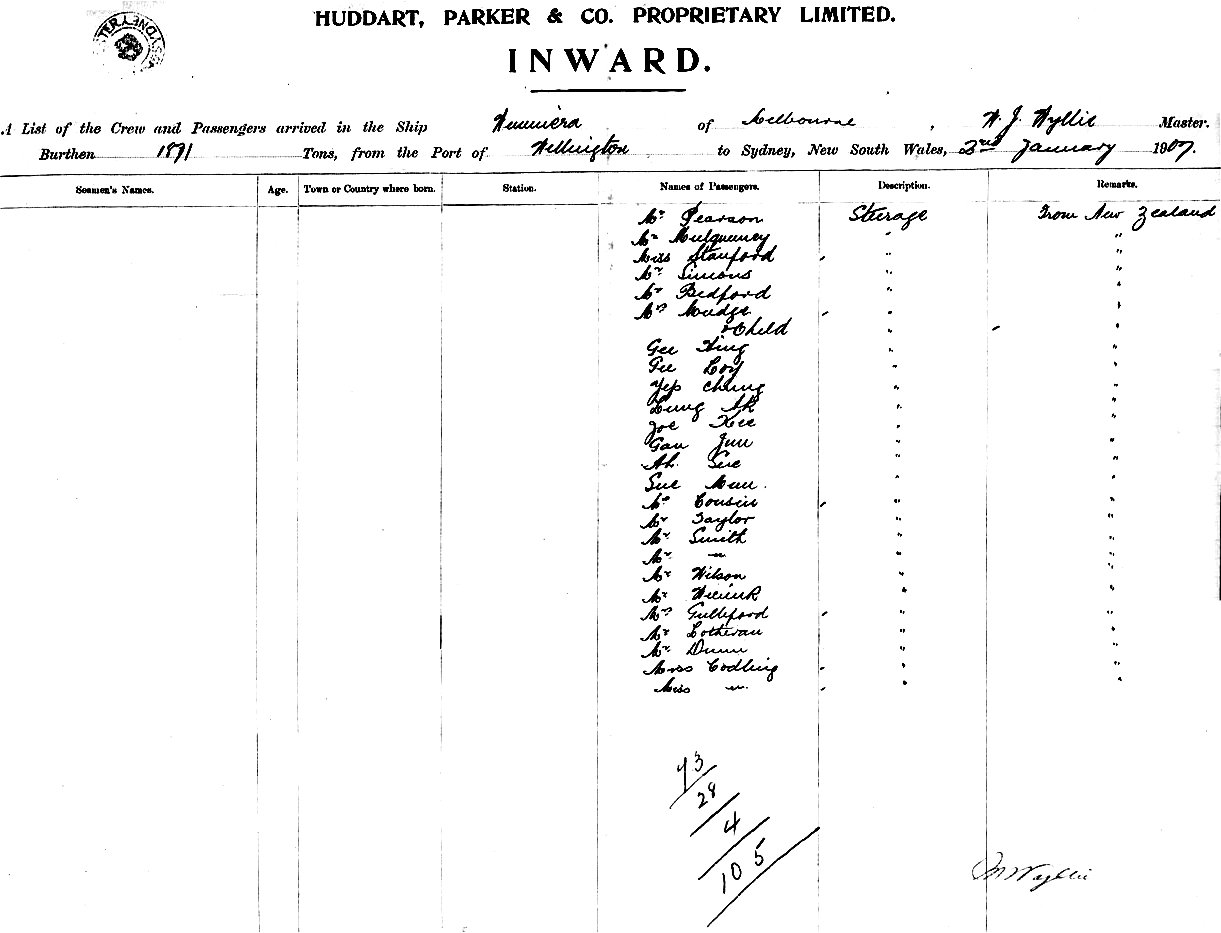 HUDDART, PARKER & CO. PROPRIETARY LIMITED.
INWARD.
A List of the Crew and Passengers arrived in the Ship Wimmera of Melbourne, W. J. Wyllie Master.
Burthen 1871 Tons, from the Port of Wellington to Sydney, New South Wales, 2nd January 1907.
Seamen's Names. Age. Town or Country where born. Station. Names of Passengers. Description. Remarks.
Mr Pearson Steerage From New Zealand
Mr " "
Miss Stanford " "
Mr Simons " "
Mr Bedford " "
Mrs Mudge " "
& Child " "
Gee Hing " "
Gee Loy " "
Yep Chung " "
Lung Ah " "
Joe Kee " "
Gan Jun " "
Ah Sue " "
Sue Mun " "
Mrs Cousin " "
Mr Taylor " "
Mr Smith " "
Mr " " "
Mr Wilson " "
Mr " "
Mrs Gulleford " "
Mr Lotheran " "
Mr Dunn " "
Miss Codling " "
Miss " " "
73
28
4
105
Wyllie